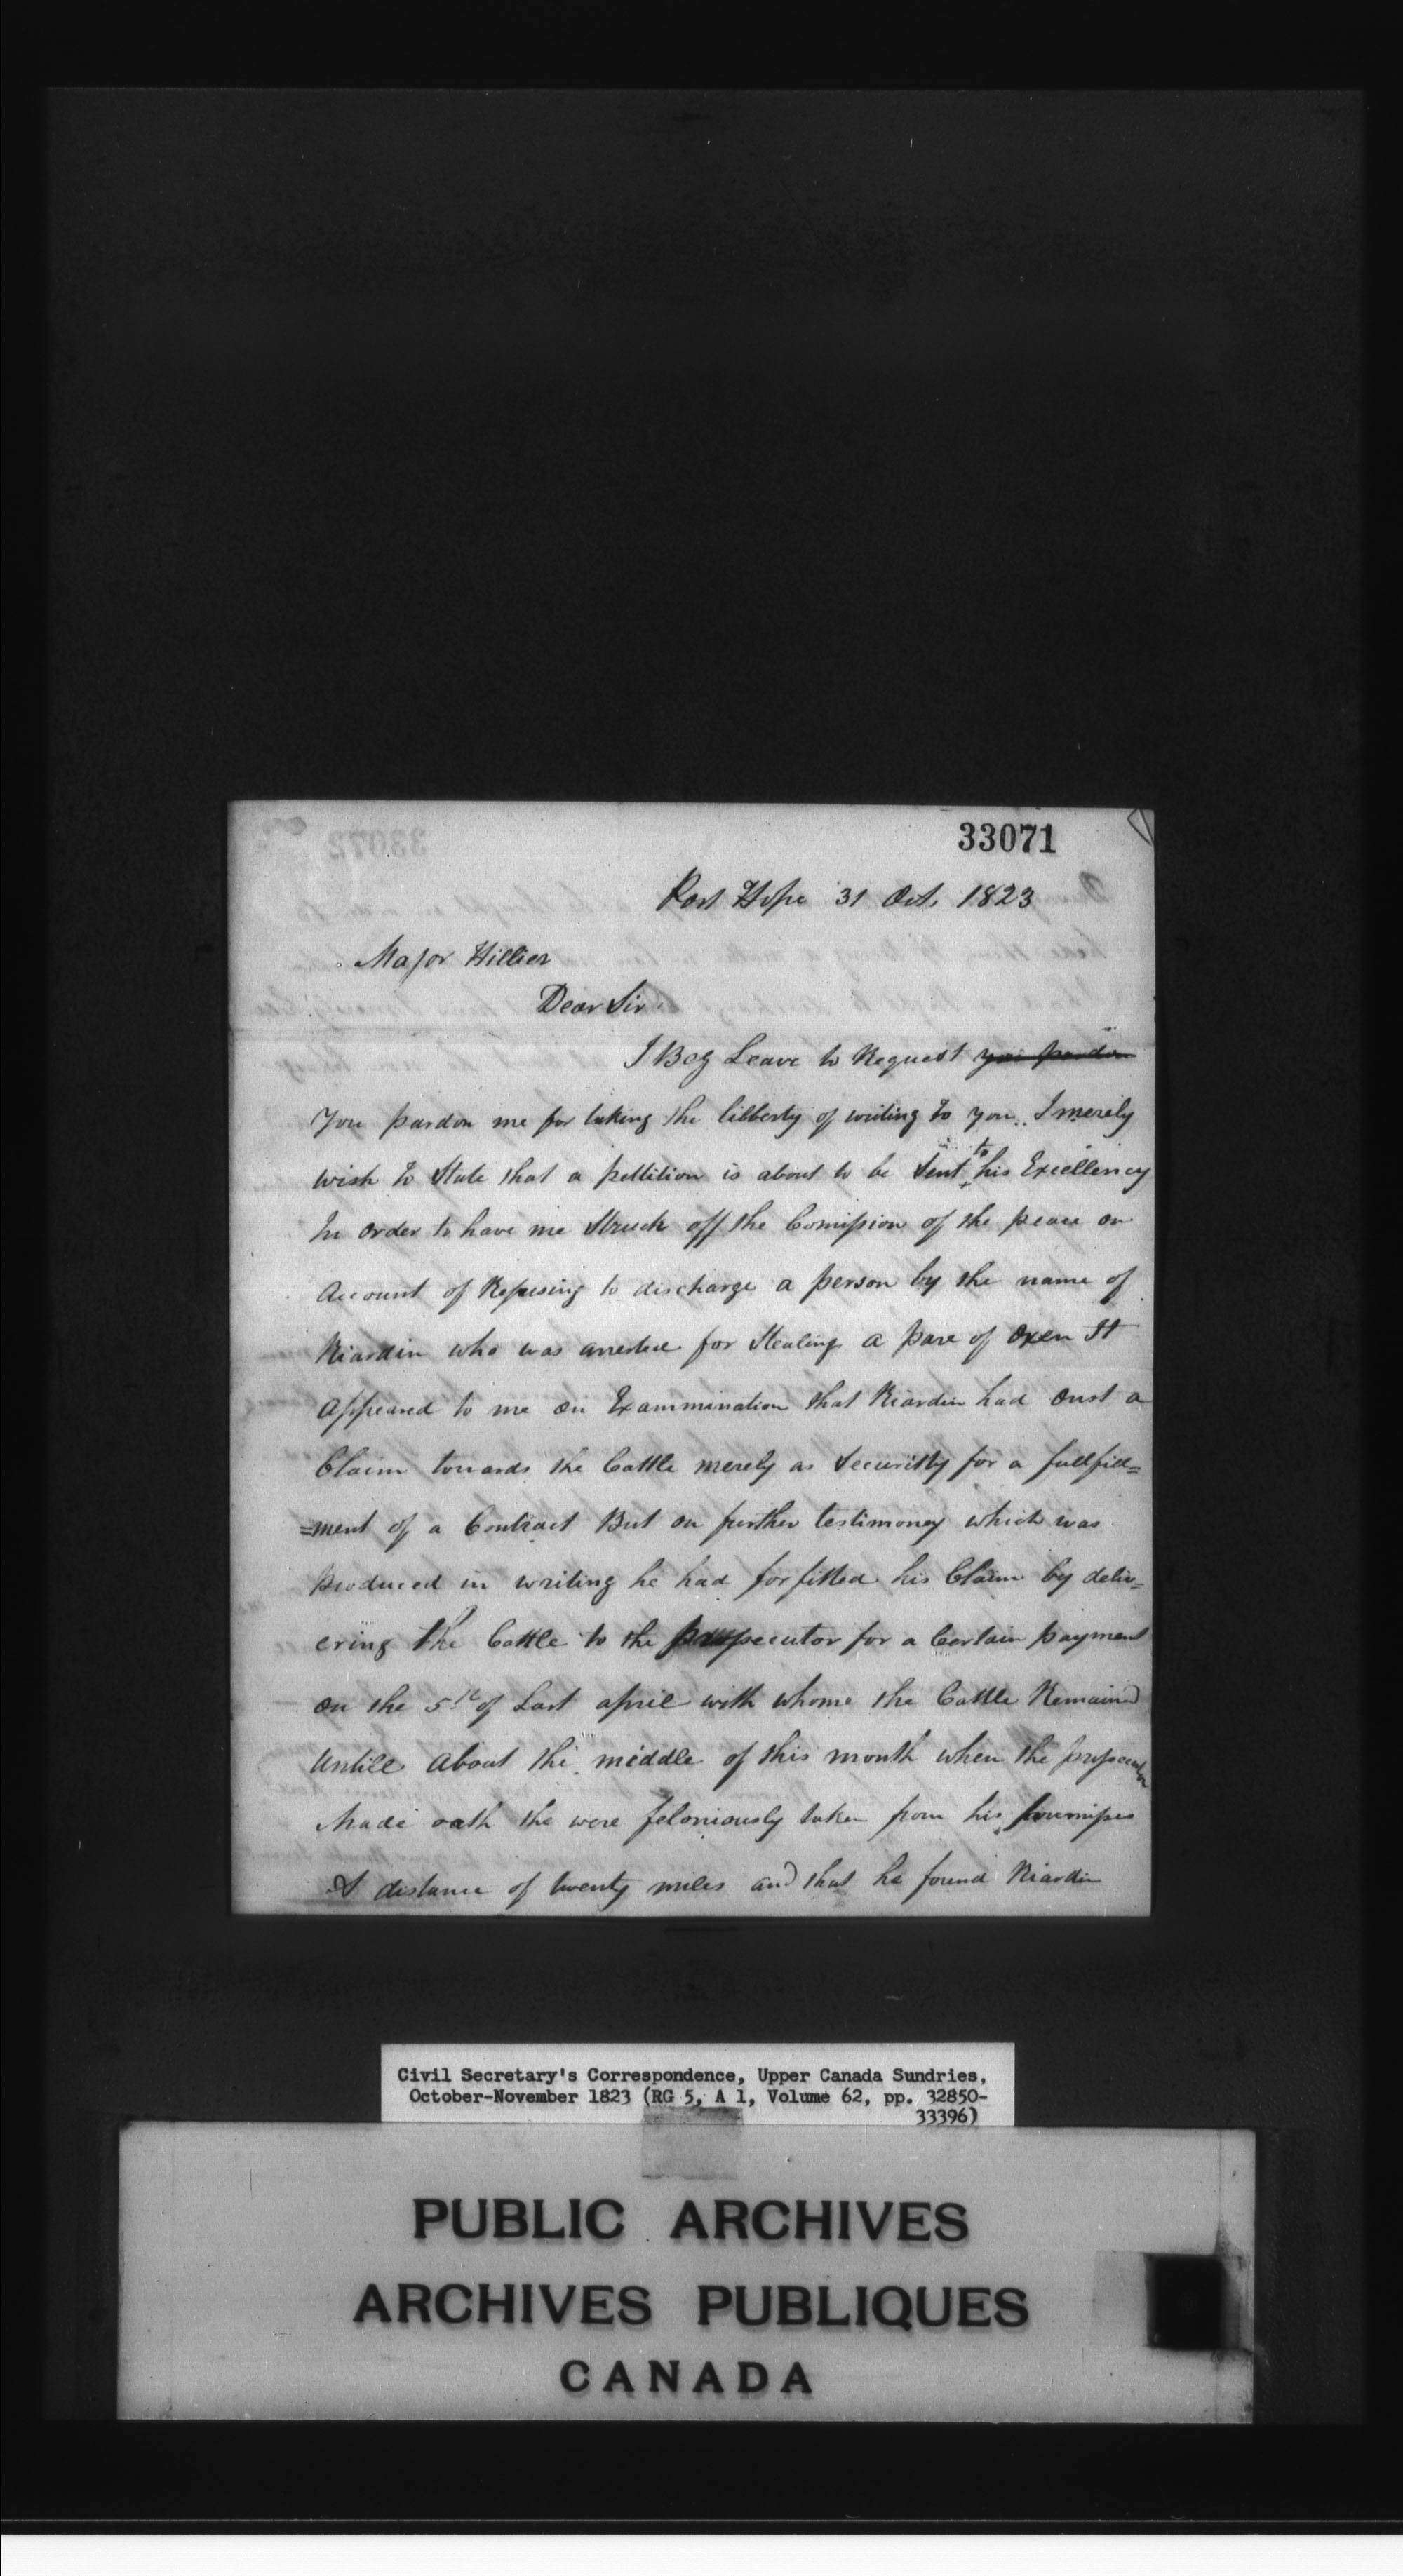 33071
33072
Port Hope 31 Oct. 1823
Major Hillier
Dear Sir
I Beg Leave to Request you pardon
You pardon me for taking the libberty of writing to you. I merely
wish to State that a pettition is about to be sent to his Excellency
In order to have me Struck off the Comission of the peace on
Account of Refusing to discharge a person by the name of
Riardin who was arrested for Stealing a pare of Oxen It
Appeared to me on Exammination that Riardin had Onst a
Claim towards the Cattle merely as Securitty for a fullfill=
=ment of a Contract But on further testimoney which was
produced in writing he had forfitted his Claim by deliv=
ering the Cattle to the prosecutor for a Certain payment
on the 5th of Last april with whome the Cattle Remained
Untill About the middle of this month when the prosecutor
Made oath the were feloniously taken from his premises
A distance of twenty miles and that he found Riardin
Civil Secretary's Correspondence, Upper Canada Sundries,
October-November 1823 (RG 5, A 1, Volume 62, pp. 32850-
33396)
PUBLIC ARCHIVES
ARCHIVES PUBLIQUES
CANADA